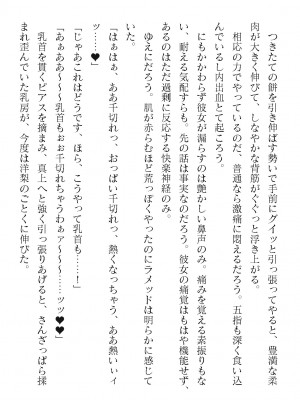 つきたての餅を引き伸ばす勢いで手前にグイッと引っ張ってやると、豊満な柔
肉が大きく伸びて、しなやかな背筋がぐぐっと浮き上がる。
相応の力でやっているのだ、普通なら激痛に悶えるだろう。五指も深く食い込
むし内出血とて起きる。
にもかかわらず彼女が漏らすのは艶かしい鼻声のみ。痛みを覚える素振りもな
い、耐える気配すらも。先の話は事実なのだろう。彼女の痛覚はもはや機能せず、
あるのはただ過剰に反応する快楽神経のみ。
ゆえにだろう。肌が赤らむほど荒っぽくやったのにラメッドは明らかに感じて
いた。
「はぁはぁ、ああ千切れっ、おっぱい千切れっ、熱くなっちゃう、ああ熱いィィ
ッ……♥」
「じゃあこれはどうです、ほら、こうやって乳首も……！」
「あぁああ〜〜〜乳首もぉぉ千切れちゃうわぁァ〜〜〜……ッッ♥♥」
乳首を貫くピアスを摘まみ、真上へと強く引っ張りあげると、さんざっぱら揉
まれ歪んでいた乳房が、今度は洋梨のごとくに伸びた。